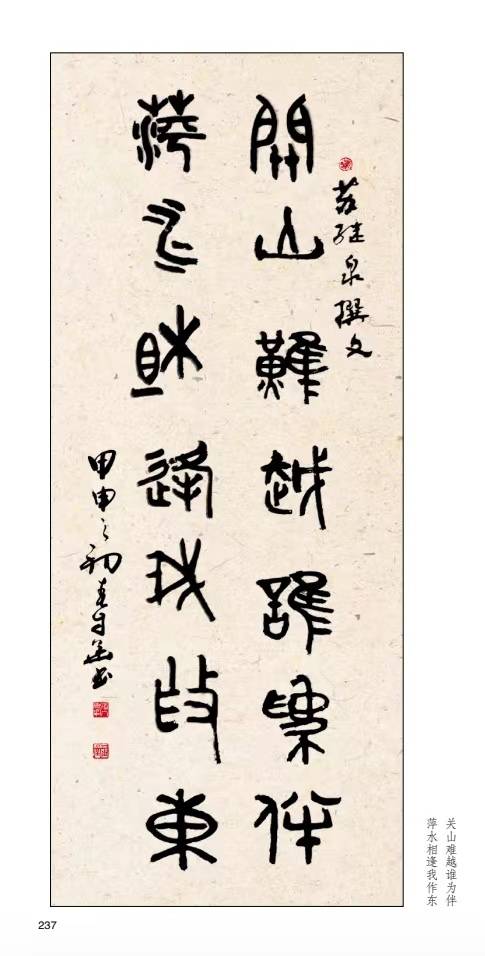 继泉撰文
關山難越誰為伴
萍水相逢我作東
甲申之初春
关山难越谁为伴
萍水相逢我作东
237